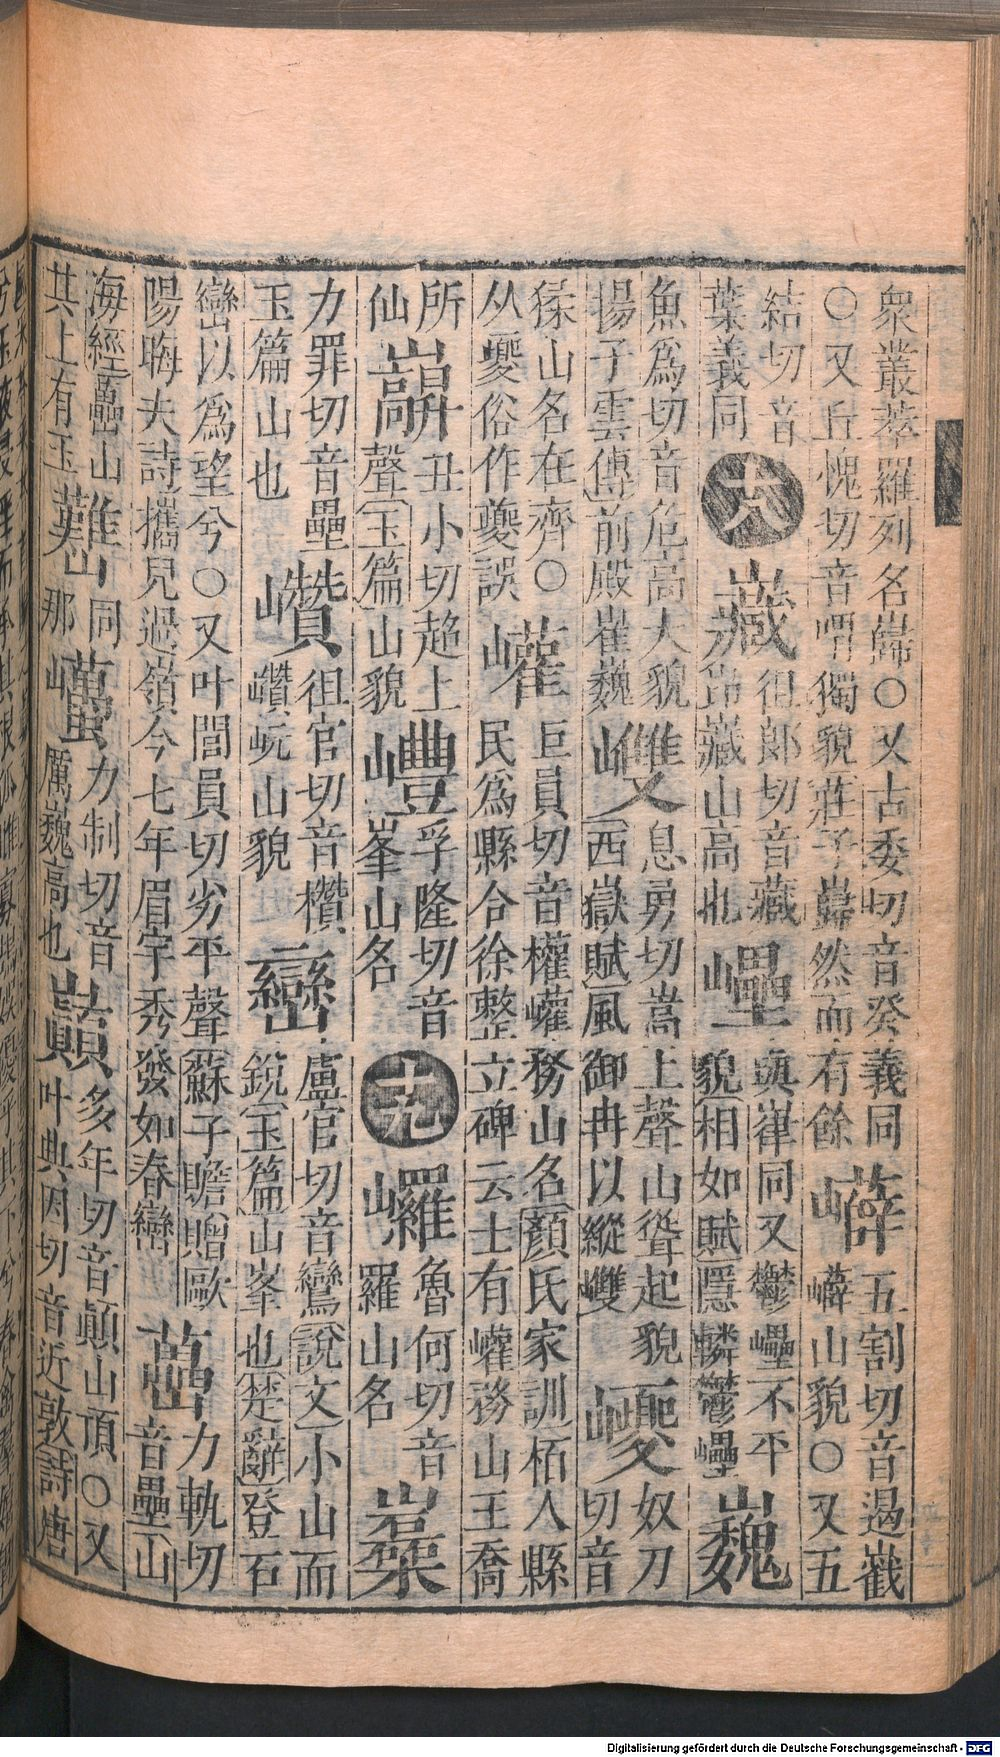 衆叢萃羅列名巋○又古委切音癸義同
○又丘愧切音喟獨貌莊子巋然而有餘
嶭五割切音遏巀嶭山貌○又五
結切音葉義同
十八
巇徂郎切音藏山高貌
壘與嵂同又鬱壘不平貌相如賦隱轔鬱壘
巍魚爲切音危高大貌揚子雲傳前殿崔巍
息勇切嵩上聲山聳起貌西嶽賦風御冉以縱
奴刀切音猱山名在齊○从夒俗作夔誤
巏巨員切音權巏務山名顏氏家訓栢人縣民爲縣令徐整立碑云土有巏務山王喬所仙
丑小切超上聲玉篇山貌
孚隆切音峯山名
十九
魯何切音羅山名
力罪切音壘玉篇山也
巑徂官切音欑巑岏山貌
巒盧官切音鸞說文小山而銳玉篇山峯也楚辭登石巒以爲望兮○又叶閭員切劣平聲蘇子瞻贈歐陽晦夫詩攜兒過嶺今七年眉宇秀發如春巒
力軌切音壘山海經山其上有玉
難山同那
力制切音厲巍高也
巔多年切音顛山頂○又叶典因切音近敦詩唐
Digitalisierung gefördert durch die Deutsche Forschungsgemeinschaft - DFG